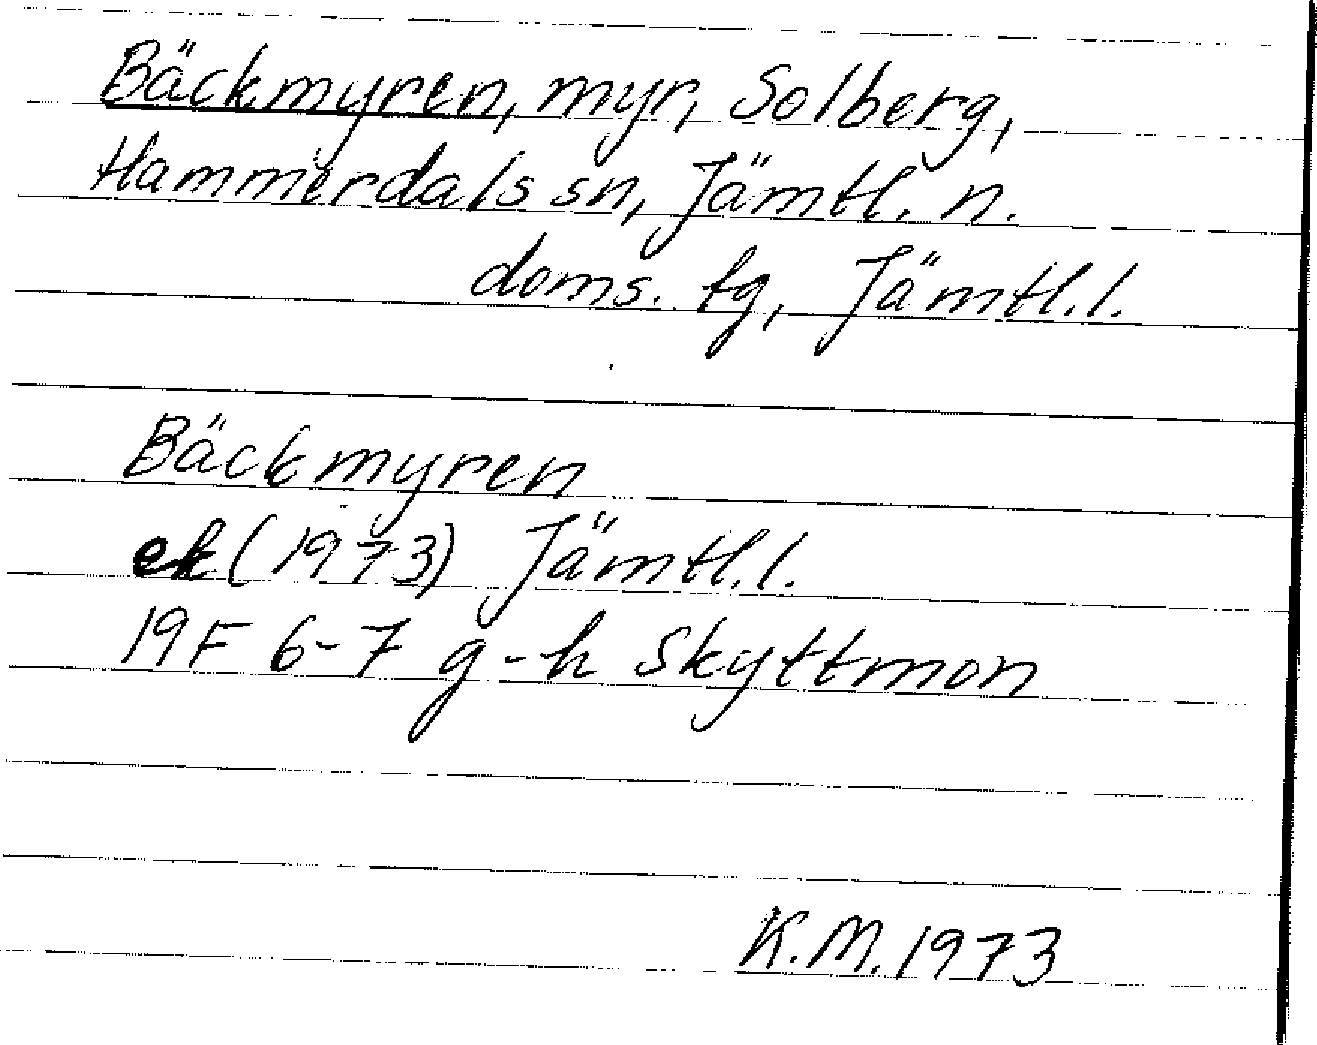 Bäckmyren, myr, Solberg,
Hammerdals sn, Jämtl. n.
doms. tg, Jämtl.l.
Bäckmyren
ek (1973) Jämtl.l.
19F 6-7 g-h Skyttmon
K.M. 1973